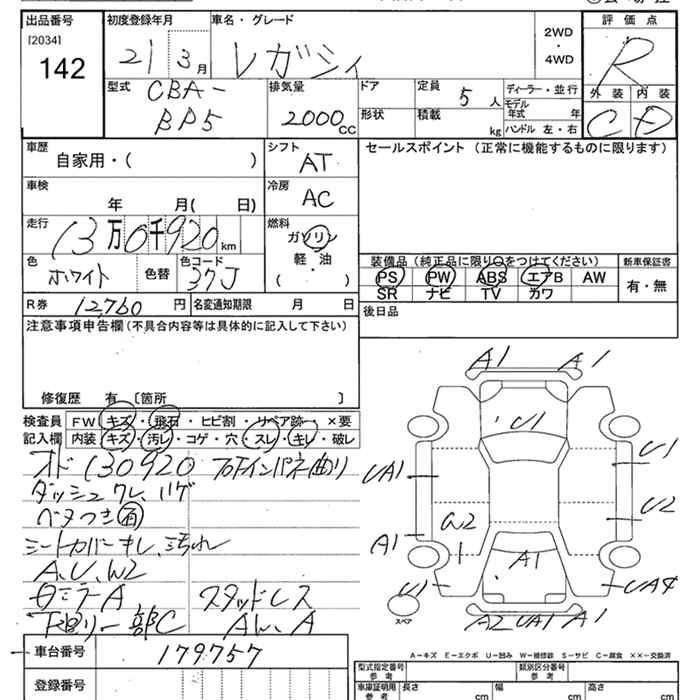 出品番号
[2034]
142
初度登録年月
21 3月
車名・グレード
レガシィ
2WD
・
4WD
評価点
R
外装 内装
C D
型式
CBA-
BP5
排気量
2000cc
ドア
形状
定員
5人
積載
kg
ディーラー・並行
モデル年式 年
ハンドル 左・右
車歴
自家用・( )
シフト
AT
セールスポイント (正常に機能するものに限ります)
車検
年 月( 日)
冷房
AC
走行
13万0千920km
燃料
ガソリン
軽・油
( )
色
ホワイト
色替
色コード
37J
装備品 (純正品に限り○をつけてください)
PS PW ABS エアB AW
SR ナビ TV カワ
新車保証書
有・無
R券 12,760円
名変通知期限 月 日
後日品
注意事項申告欄 (不具合内容等は具体的に記入して下さい)
修復歴 有〔箇所 〕
検査員記入欄
FW キズ・飛石・ヒビ割・リペア跡・×要
内装 キズ・汚レ・コゲ・穴・スレ・キレ・破レ
オド 130920
ダッシュ ワレ、ハゲ
ベタつき有
シートカバーキレ、汚れ
A、U、W2
ミラーA
下回り 部C
スタッドレス
A1 A1
U1
UA1
U1
U2
W2
A1
A1
U1
UA4
A2 UA1 A1
スペア
A-キズ E-エクボ U-凹み W-補修跡 S-サビ C-腐食 ××-交換済
車台番号
179757
登録番号
型式指定番号
参考
類別区分番号
参考
車庫証明用
参考
長さ cm
幅 cm
高さ cm